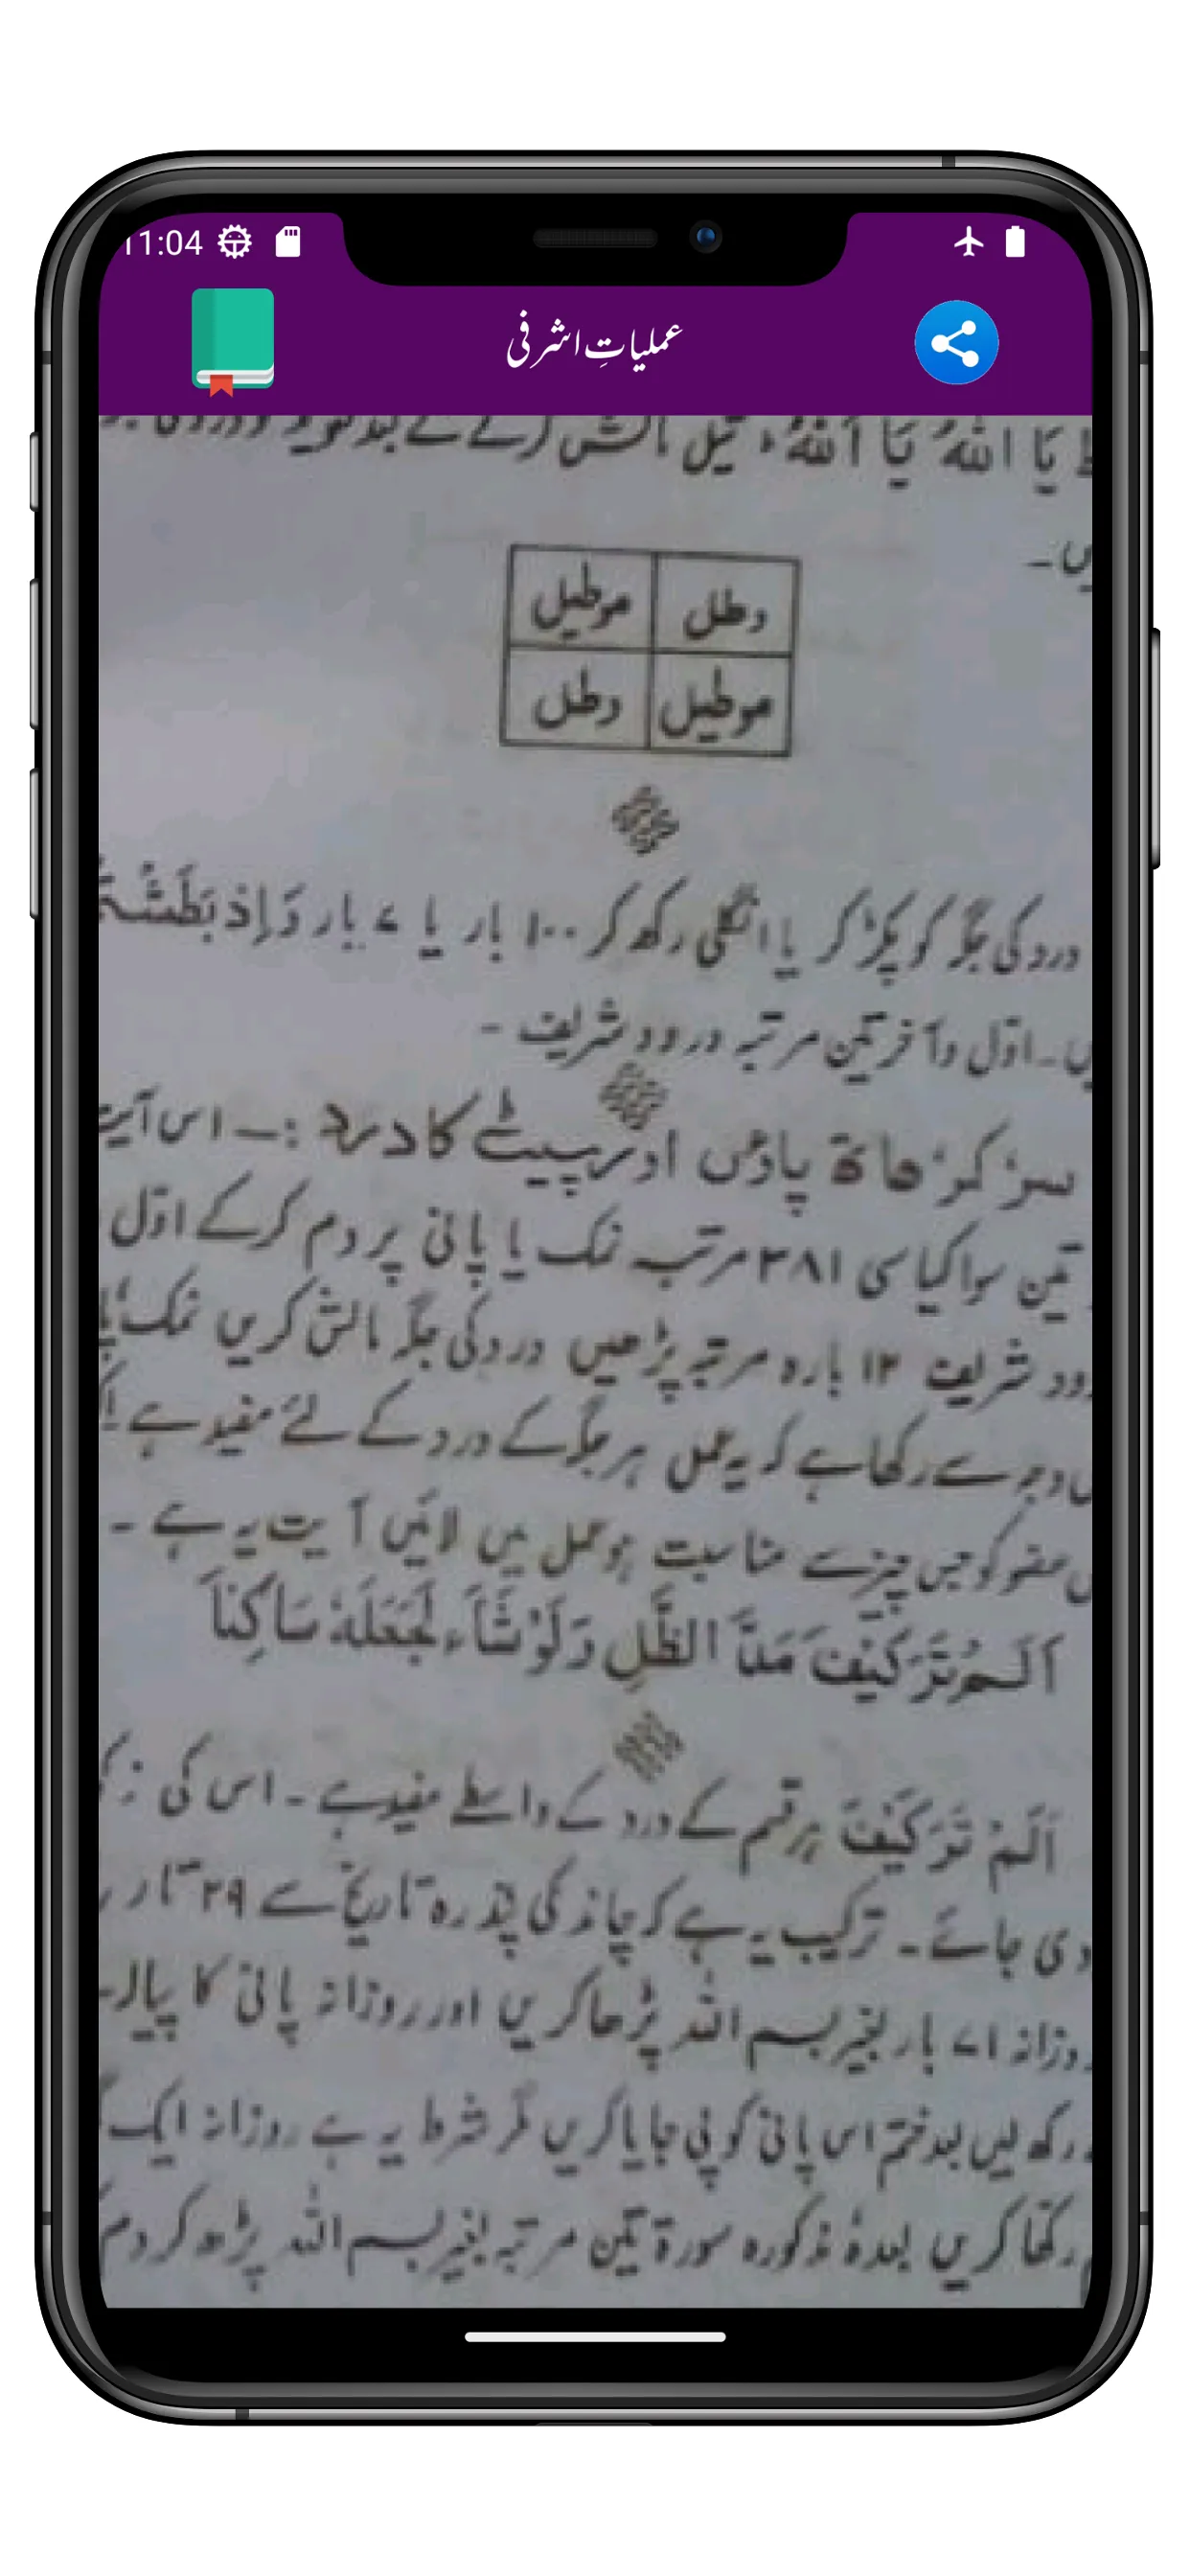 11:04
عملیاتِ اشرفی
یَا اَللّٰهُ یَا اَللّٰهُ
یں۔
دطل موطیل
موطیل دطل
درد کی جگہ کو پکڑ کر یا انگلی رکھ کر ۱۰۰ بار یا ۷ بار وَاِذَ بَطَشْتُمْ
اوّل وآخر تین مرتبہ درود شریف ۔
سر، کمر، ھاتھ پاؤں اور پیٹ کا درد :۔ اس آیت
تین سو اکیاسی ۳۸۱ مرتبہ نمک یا پانی پر دم کرکے اوّل
رود شریف ۱۲ بارہ مرتبہ پڑھیں درد کی جگہ مالش کریں نمک
وجہ سے رکھا ہے کہ یہ عمل ہر جگہ کے درد کے لئے مفید ہے
عضو کو جس چیز سے مناسبت ہو عمل میں لائیں آیت یہ ہے ۔
اَلَمْ تَرَ کَیْفَ مَدَّ الظِّلَّ وَلَوْ شَآءَ لَجَعَلَهٗ سَاکِنًا
اَلَمْ تَرَ کَیْفَ ہر قسم کے درد کے واسطے مفید ہے ۔ اس کی
دی جائے ۔ ترکیب یہ ہے کہ چاند کی پندرہ تاریخ سے ۲۹ تا
روزانہ ۷۱ بار بغیر بسم اللہ پڑھا کریں اور روزانہ پانی کا پیالہ
رکھ لیں بعد ختم اس پانی کو پی جایا کریں مگر شرط یہ ہے روزانہ ایک
رکھا کریں بعدہٗ مذکورہ سورۃ تین مرتبہ بغیر بسم اللہ پڑھ کر دم